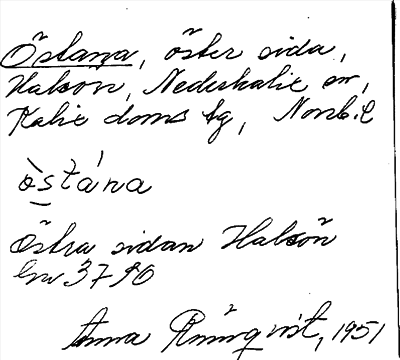 Östana, öster sida,
Halsön, Nederkalix sn,
Kalix doms tg, Norrb. l
östána
Östra sidan Halsön
Gw 3790
Anna Rönnqvist, 1951